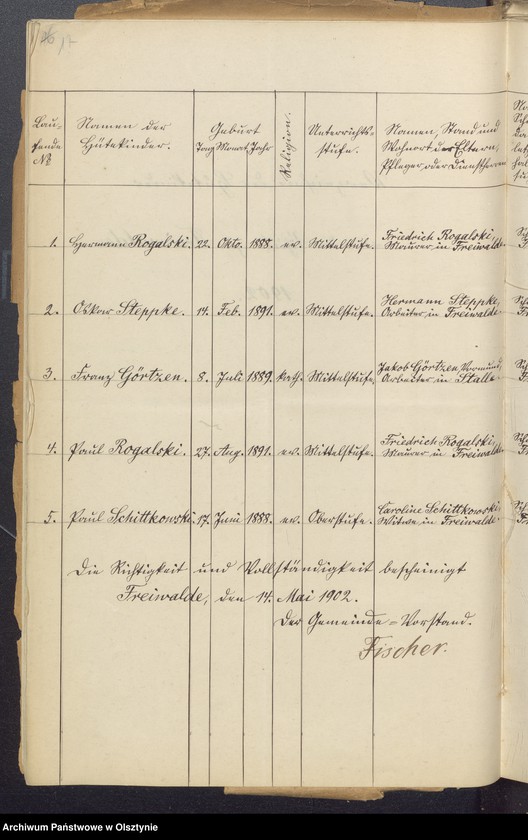 17
Lau-
fende
№
Namen der
Hütekinder.
Geburt
Tag Monat Jahr
Religion.
Unterrichts-
stufe.
Namen, Stand und
Wohnort der Eltern,
Pfleger, oder Dienstherren
1. Hermann Rogalski. 22. Okto. 1888. ev. Mittelstufe. Friedrich Rogalski,
Maurer in Freiwalde.
2. Oskar Steppke. 14. Feb. 1891. ev. Mittelstufe. Hermann Steppke,
Arbeiter in Freiwalde.
3. Franz Görtzen. 8. Juli 1889. kath. Mittelstufe. Jakob Görtzen, Vormund,
Arbeiter in Stalle.
4. Paul Rogalski. 27. Aug. 1891. ev. Mittelstufe. Friedrich Rogalski,
Maurer in Freiwalde.
5. Paul Schittkowski. 17. Juni 1888. ev. Oberstufe. Caroline Schittkowski,
Witwe in Freiwalde.
Die Richtigkeit und Vollständigkeit bescheinigt
Freiwalde, den 14. Mai 1902.
Der Gemeinde-Vorstand.
Fischer.
Archiwum Państwowe w Olsztynie